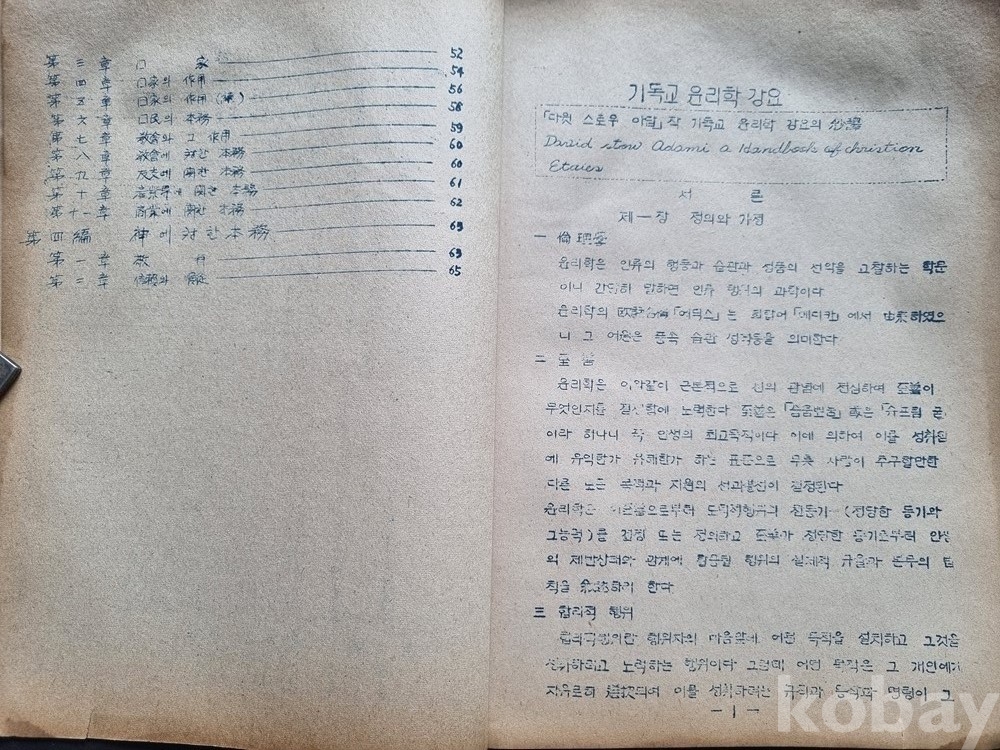 第三章 口家 52
第四章 口家의 作用 54
第五章 口家의 作用(續) 56
第六章 口民의 本務 58
第七章 敎會와 그 作用 59
第八章 敎會에 対한 本務 60
第九章 関한 本務 60
第十章 関한 本務 61
第十一章 商業에 関한 本務 62
第四編 神에 対한 本務 63
第一章 敬 63
第二章 65
기독교 윤리학 강요
「다윗 스토우 아담」작 기독교 윤리학 강요의 抄譯
David stow Adami a Handbook of christion
Etcies
서 론
제一장 정의와 가정
一 倫理学
윤리학은 인류의 행동과 습관과 성품의 선악을 고찰하는 학문
이니 간단히 말하면 인류 행위의 과학이다
윤리학의 는 희랍어 에서 由来하였으
니 그 어원은 풍속 습관 성격등을 의미한다
二 至善
윤리학은 이와같이 근본적으로 선의 관념에 전심하며 至善이
무엇인지를 결정함에 노력한다 至善은 或은 「슈프림 굳
이라 하나니 즉 인생의 최고목적이다 이에 의하여 이를 성취함
에 유익한가 유해한가 하는 표준으로 사람이 추구할만한
다른 모든 목적과 지원의 선과불선이 결정된다
윤리학은 으로부터 도덕적행위의 진동기 (정당한 동기와
그능력)를 또는 정의하고 정당한 동기로부터 인생
의 제반상태와 관계에 행위의 실제적 규율과 본무의 법
칙을 한다
三 합리적 행위
합리적행위란 행위자의 마음앞에 어떤 목적을 설치하고 그것을
성취하려고 노력하는 행위이다 그런데 어떤 목적은 그 개인에게
자유로히 選択되며 이를 성취하려는 명령이 그
ー1ー
kobay